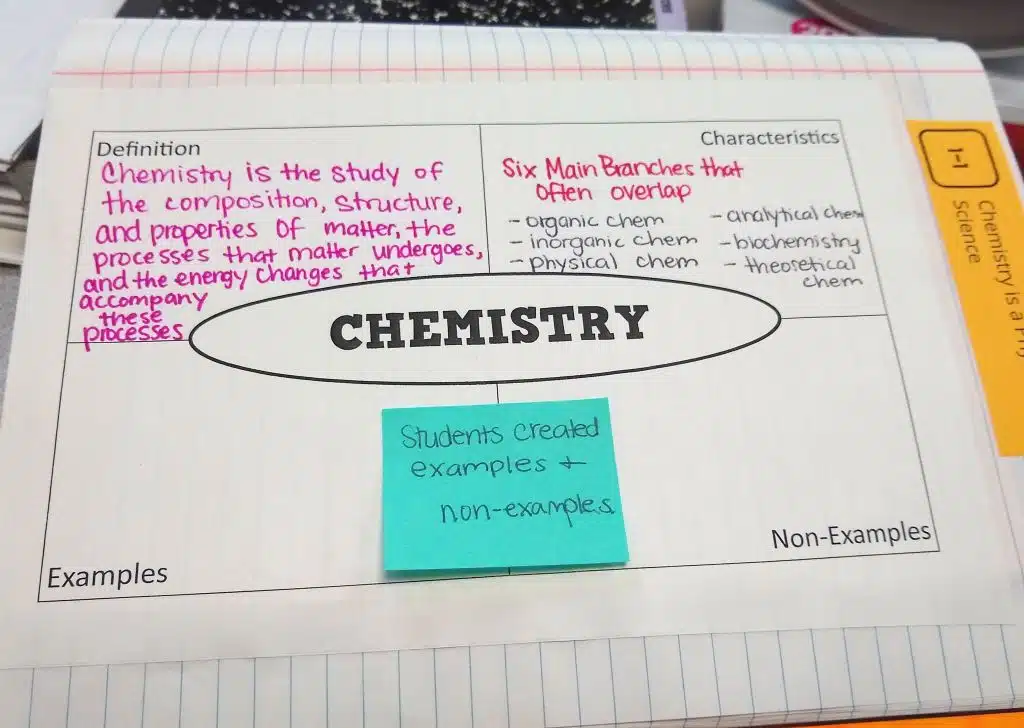 Definition
Chemistry is the study of
the composition, structure,
and properties of matter, the
processes that matter undergoes,
and the energy changes that
accompany
these
processes
Characteristics
Six Main Branches that
often overlap
- organic chem
- inorganic chem
- physical chem
- analytical chem
- biochemistry
- theoretical
chem
CHEMISTRY
Students created
examples +
non-examples
Examples
Non-Examples
1-1
Chemistry is a
Science